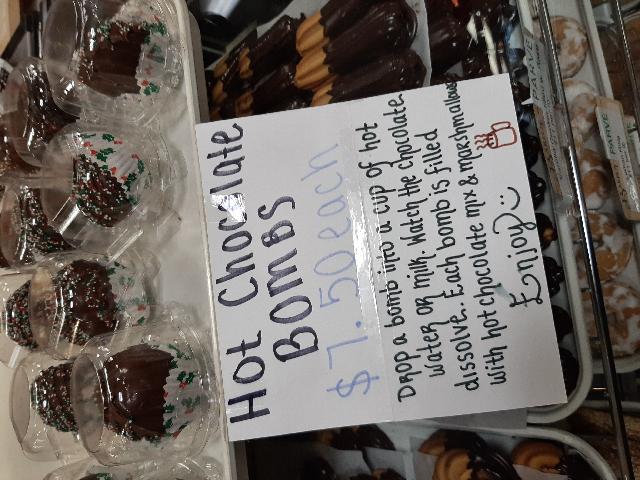 Hot Chocolate
Bombs
$7.50 each
Drop a bomb into a cup of hot
water or milk. Watch the chocolate
dissolve. Each bomb is filled
with hot chocolate mix & marshmallows
Enjoy :)